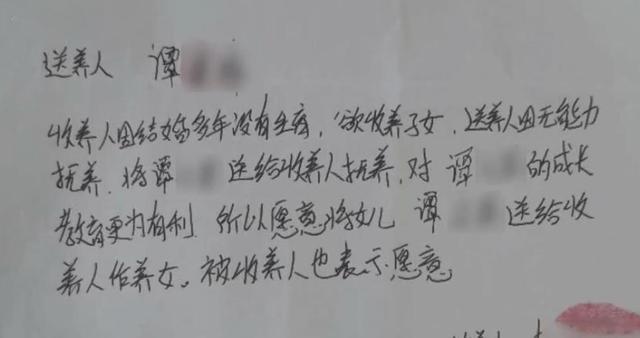 送养人 谭
收养人因结婚多年没有生育,欲收养子女,送养人因无能力
抚养,将谭 送给收养人抚养,对 谭 的成长
教育更为有利 所以愿意将女儿 谭 送给收
养人作养女。被收养人也表示愿意